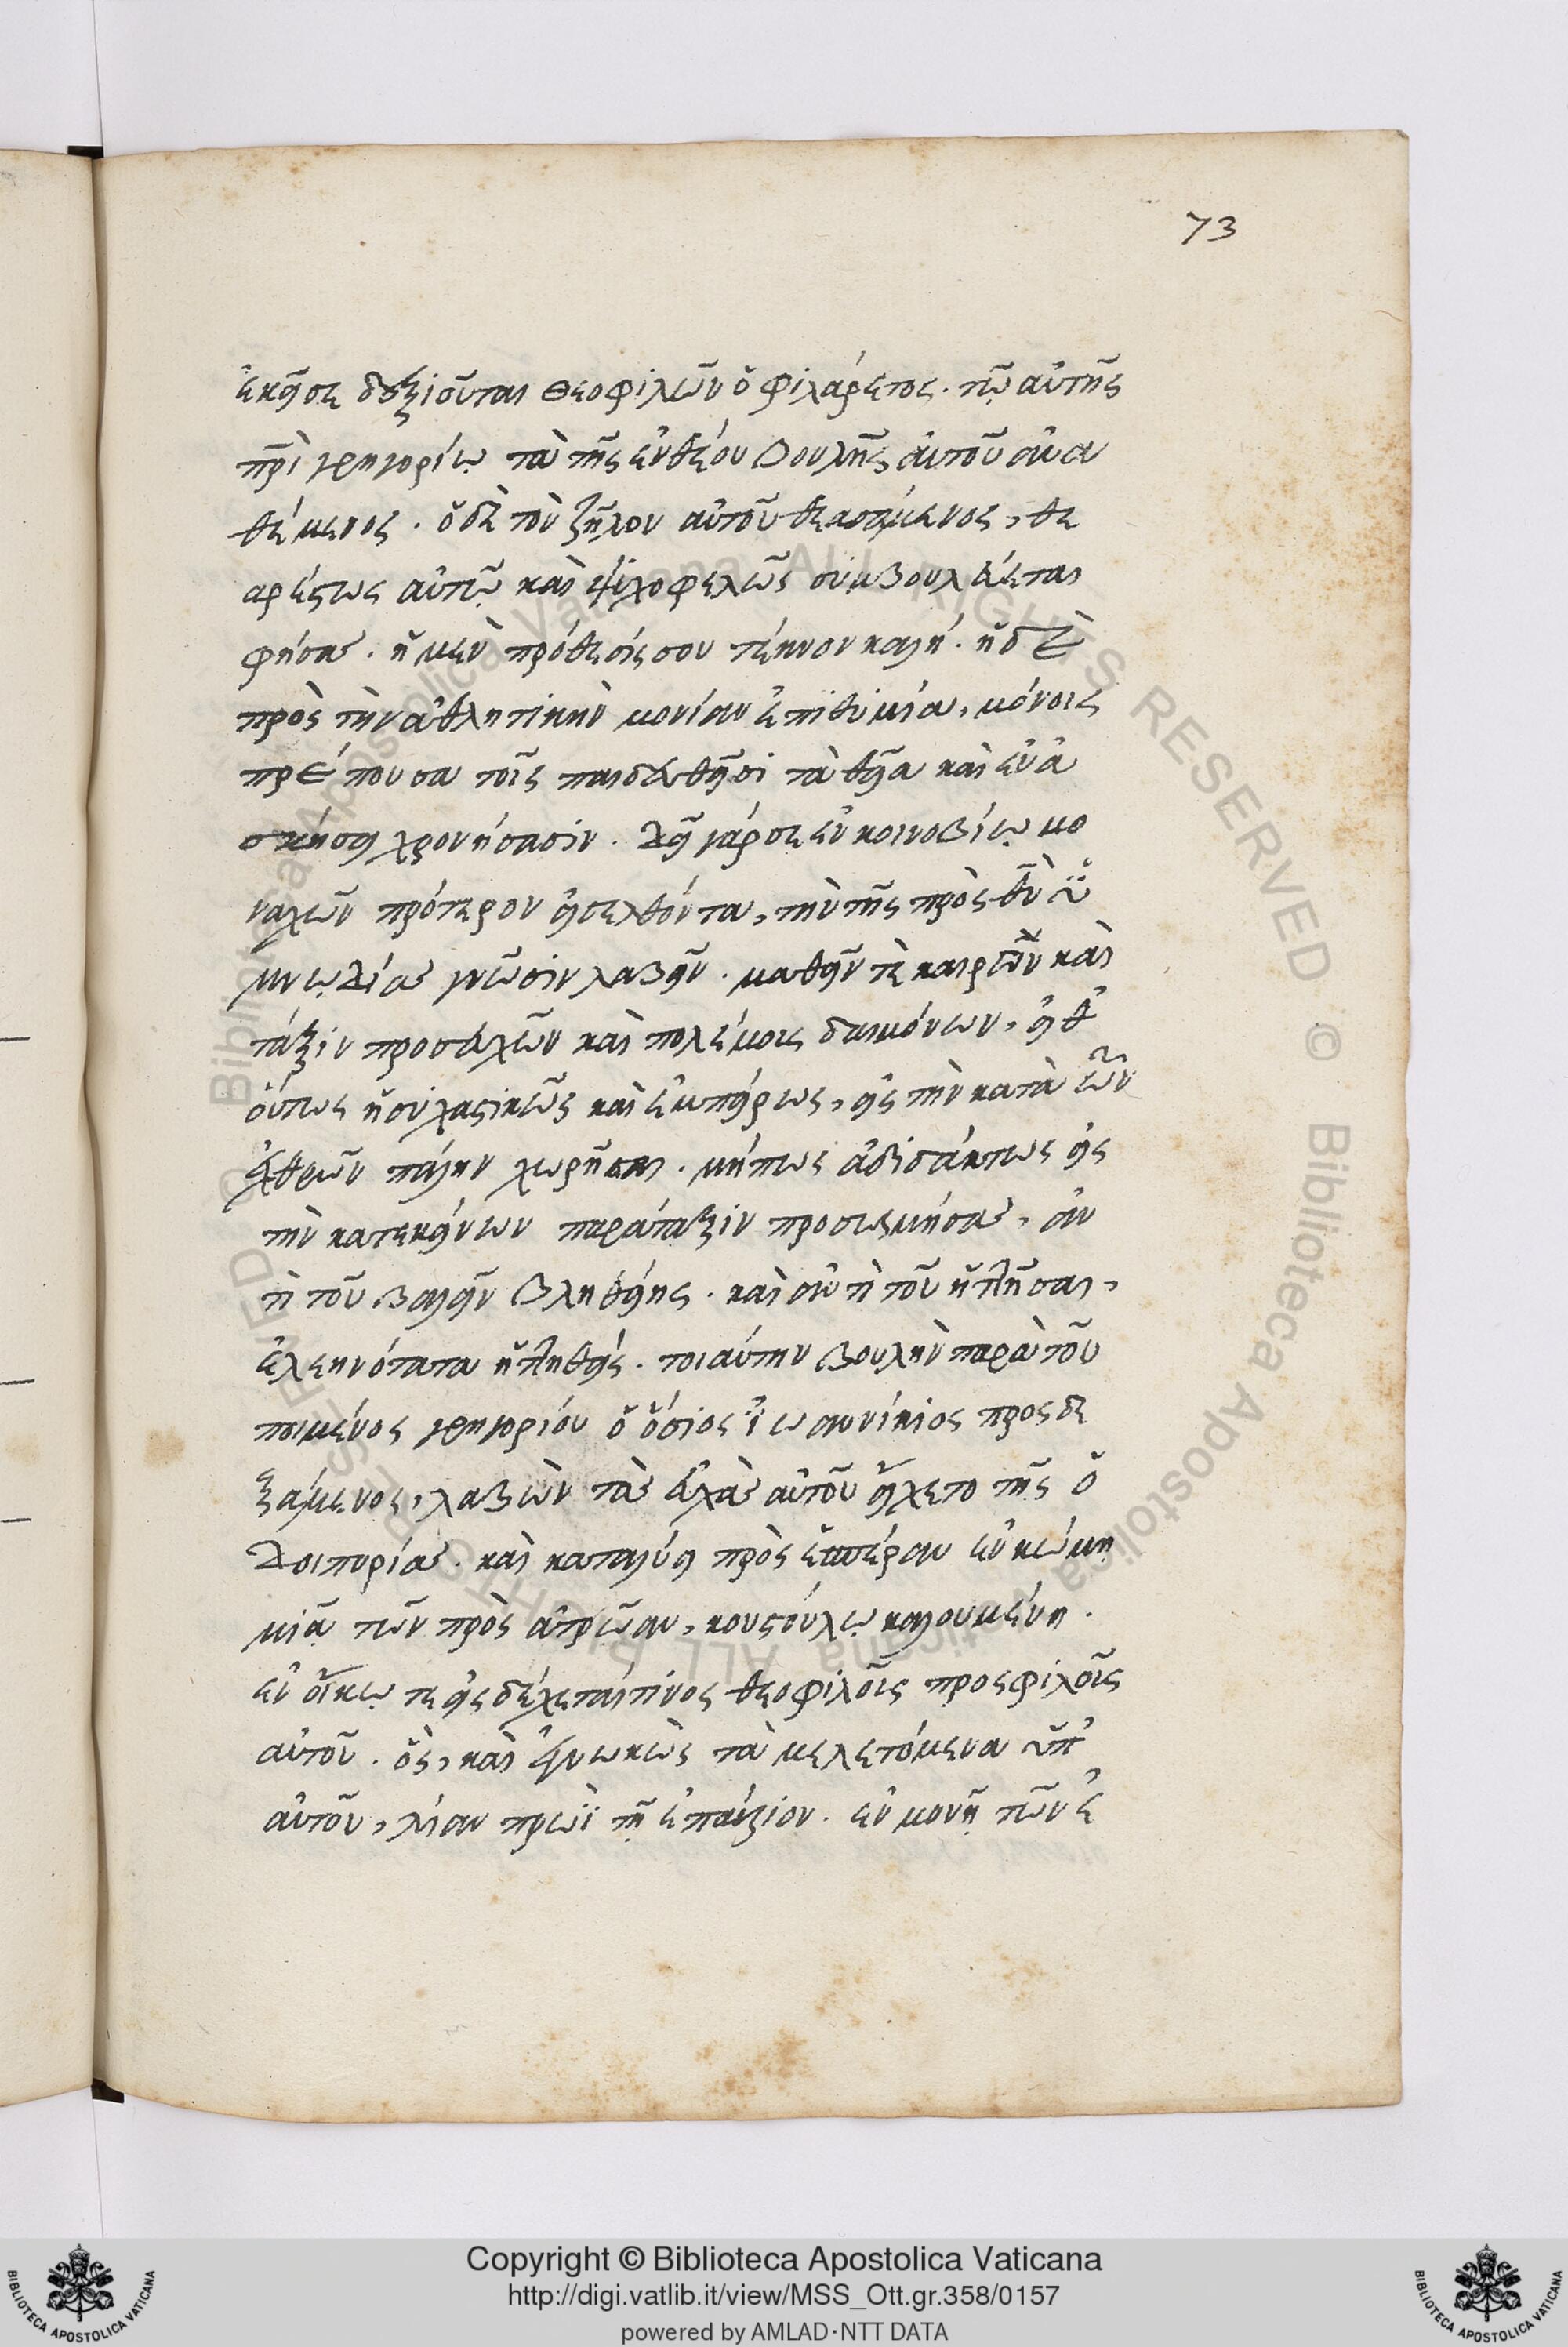 73
ἐκεῖσε δεξιοῦται θεοφιλῶν ὁ φιλάρετος. τῷ αὐτῆς
πρὶ γρηγορίῳ τὰ τῆς ἐνθέου βουλῆς αὐτοῦ ἀνα
θέμενος. ὁ δὲ τὸν ζῆλον αὐτοῦ θεασάμενος, θε
αρέστως αὐτῷ καὶ ψυχοφελῶς συμβουλεύεται
φήσας. ἡ μὲν πρόθεσίς σου τέκνον καλή. ἡ δὲ
πρὸς τὴν ἀθλητικὴν μονίαν ἐπιθυμία, μόνοις
πρέπουσα τοῖς παιδευθεῖσι τὰ θεῖα καὶ ἐν ἀ
σκήσει χρονήσασιν. δεῖ γάρ σε ἐν κοινοβίῳ μο
ναχῶν πρότερον εἰσελθόντα, τὴν τῆς πρὸς θν ὑ
μνῳδίας γνῶσιν λαβεῖν. μαθεῖν τε καιρῶν καὶ
τάξιν προσευχῶν καὶ πολέμοις δαιμόνων, εἶθ
οὕτως ἡσυχαστικῶς καὶ ἐμπείρως, εἰς τὴν κατὰ τῶν
ἐχθρῶν πάλην χωρῆσαι. μήπως ἀδιστάκτως εἰς
τὴν κατεκείνων παράταξιν προσορμήσας, ἀν
τὶ τοῦ βαλεῖν βληθείης. καὶ ἀντὶ τοῦ ἡττῆσαι,
ἐλεεινότατα ἡττηθείς. τοιαύτην βουλὴν παρὰ τοῦ
ποιμένος γρηγορίου ὁ ὅσιος ἰωαννίκιος προσδε
ξάμενος, λαβὼν τὰς εὐχὰς αὐτοῦ εἴχετο τῆς ὁ
δοιπορίας. καὶ καταλύει πρὸς ἑσπέραν ἐν κώμῃ
μιᾷ τῶν πρὸς ἀπρῶαν, κουστούλῳ καλουμένῃ.
ἐν οἴκῳ τε εἰσδέχεται τίνος θεοφιλοῦς προσφιλοῦς
αὐτοῦ. ὃς, καὶ ἐγνωκὼς τὰ μελετόμενα ὑπ
αὐτοῦ, λίαν πρωῒ τῇ ἐπαύριον. ἐν μονῇ τῶν ἐ
Copyright © Biblioteca Apostolica Vaticana
http://digi.vatlib.it/view/MSS_Ott.gr.358/0157
powered by AMLAD·NTT DATA